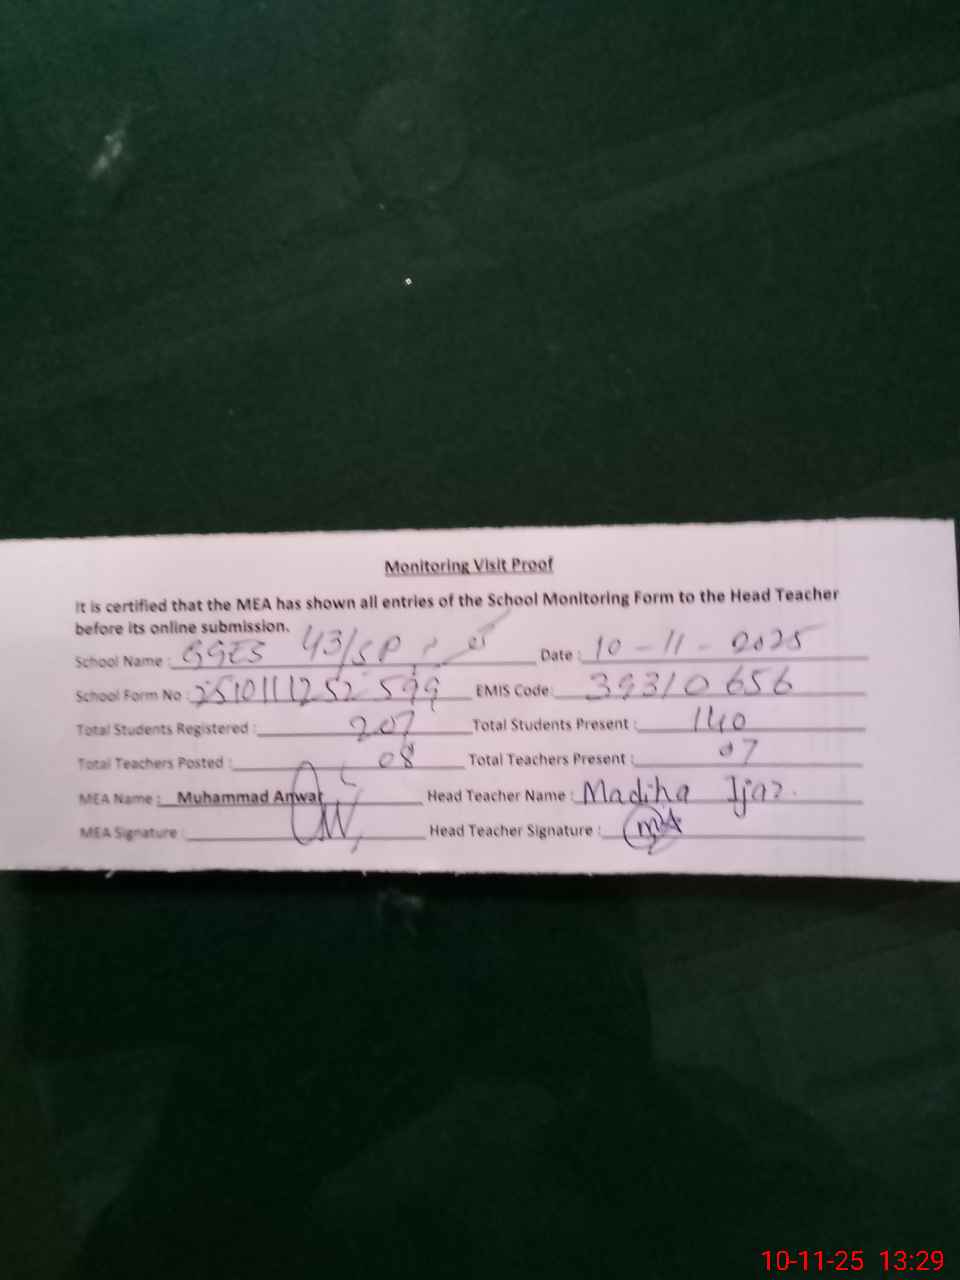 Monitoring Visit Proof
It is certified that the MEA has shown all entries of the School Monitoring Form to the Head Teacher
before its online submission.
School Name : GGES 43/SP Date : 10-11-2025
School Form No : 2510111252599 EMIS Code: 39310656
Total Students Registered : 207 Total Students Present : 140
Total Teachers Posted : 08 Total Teachers Present : 07
MEA Name : Muhammad Anwar Head Teacher Name : Madiha Ijaz.
MEA Signature : Head Teacher Signature : MA
10-11-25 13:29